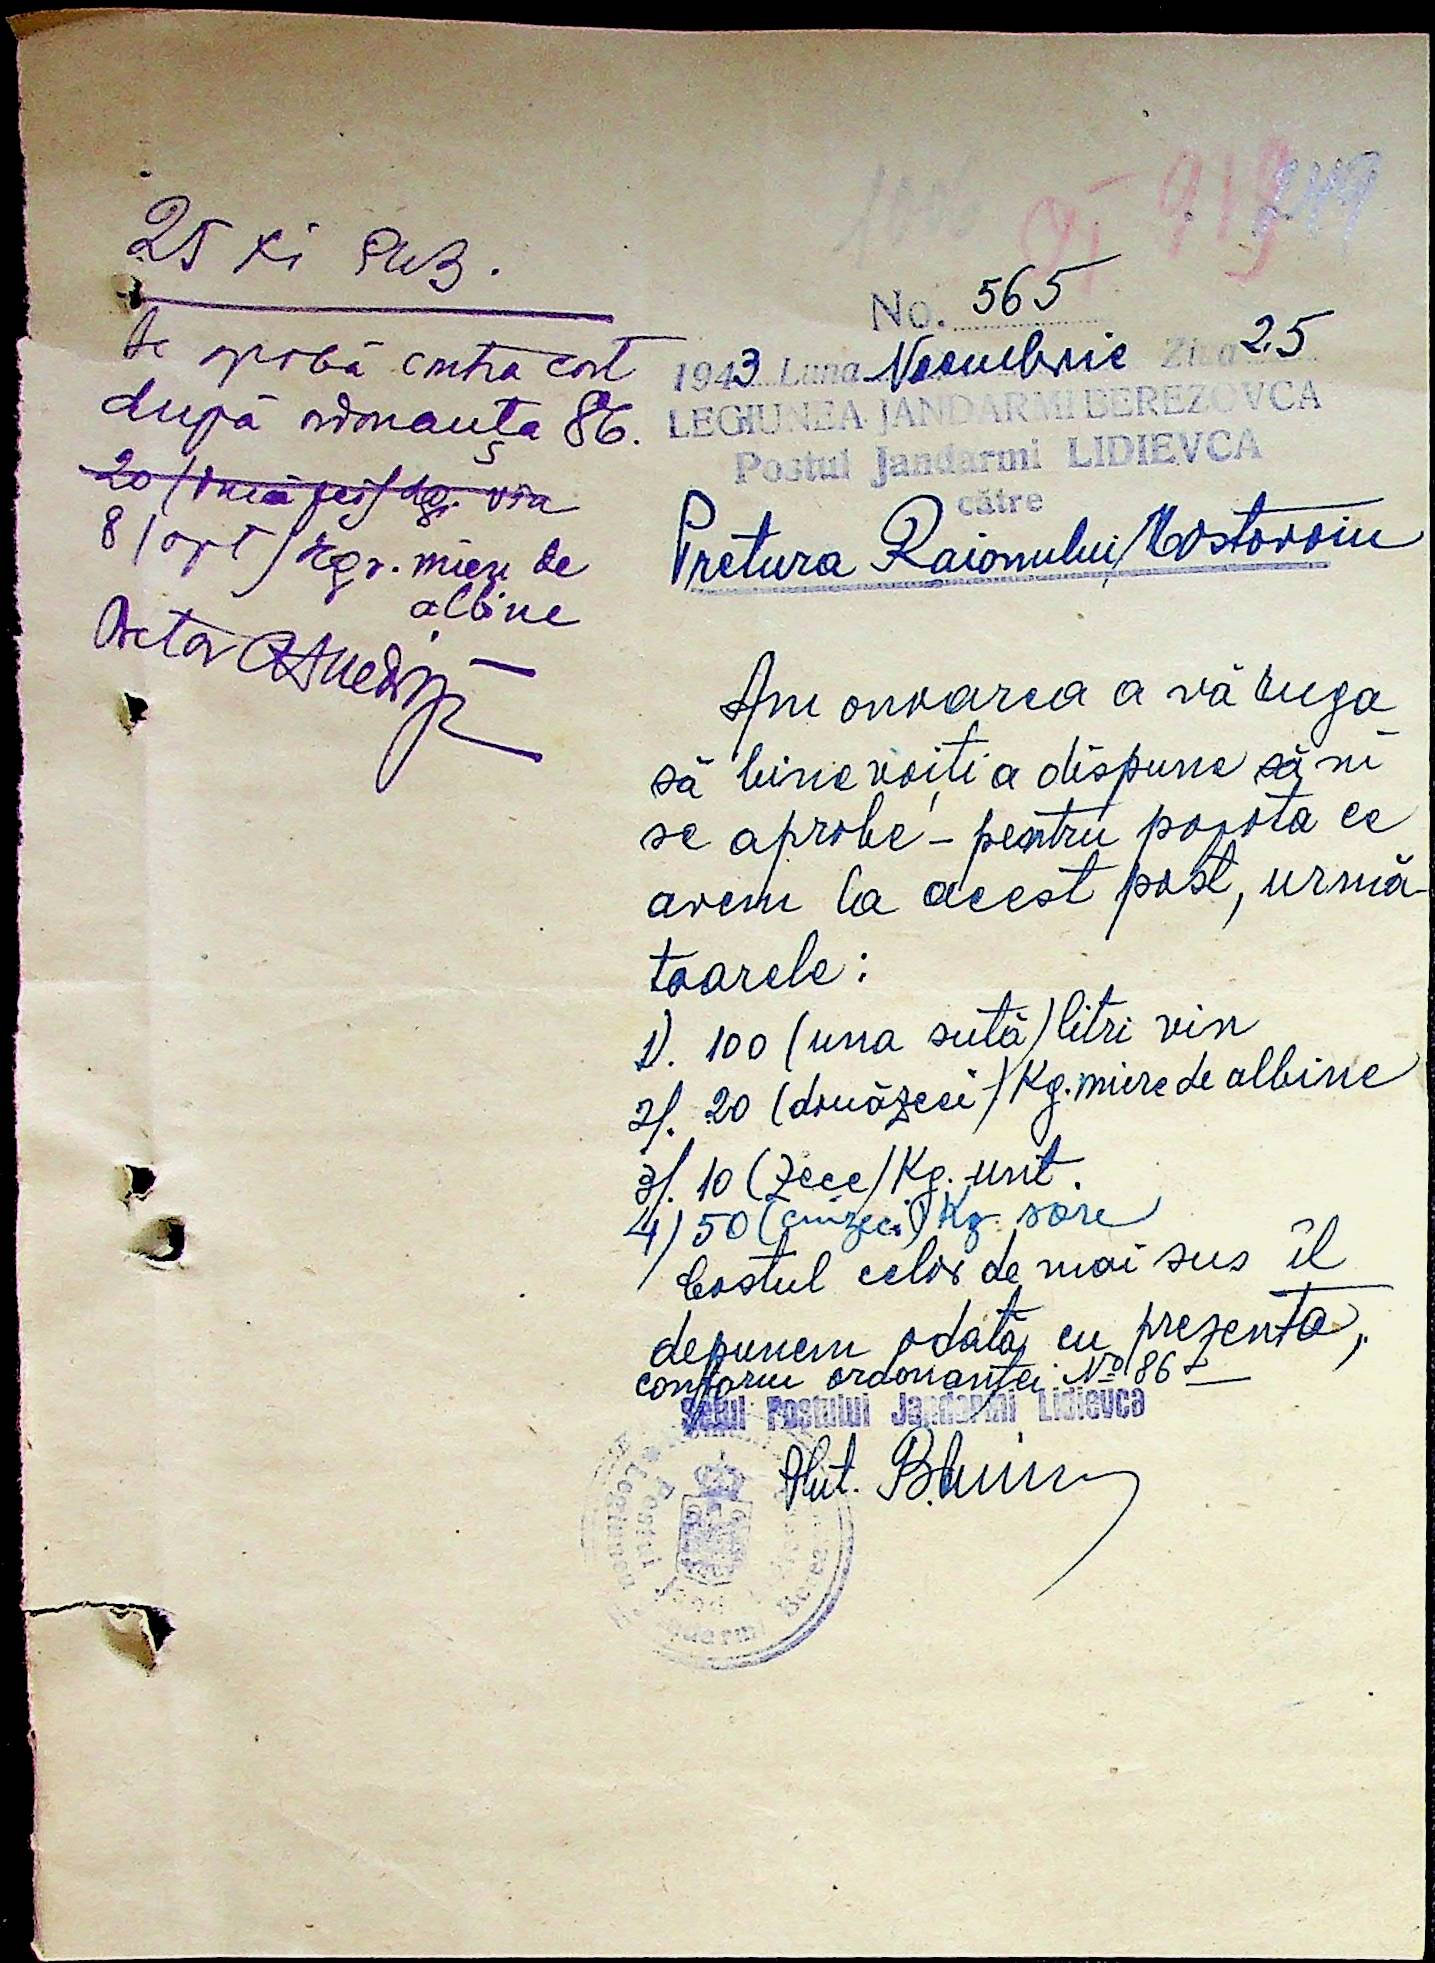 219
25 XI 943.
Se aprobă contra cost
după ordonanța 86.
20 (două zeci) kgr. vin
8 (opt) kgr. miere de
albine
Pretor
No. 565
1943 Luna Noembrie Ziua 25
LEGIUNEA JANDARMI BEREZOVCA
Postul Jandarmi LIDIEVCA
către
Pretura Raionului Mostovoiu
Am onoarea a vă ruga
să binevoiți a dispune să ni
se aprobe - pentru popota ce
avem la acest post, urmă-
toarele:
1). 100 (una sută) litri vin
2). 20 (douăzeci) Kg. miere de albine
3). 10 (zece) Kg. unt.
4) 50 (cinzeci) Kg. sare
Costul celor de mai sus îl
depunem odată cu prezenta,
conform ordonanței No 86
Șeful Postului Jandarmi Lidievca
Plut.